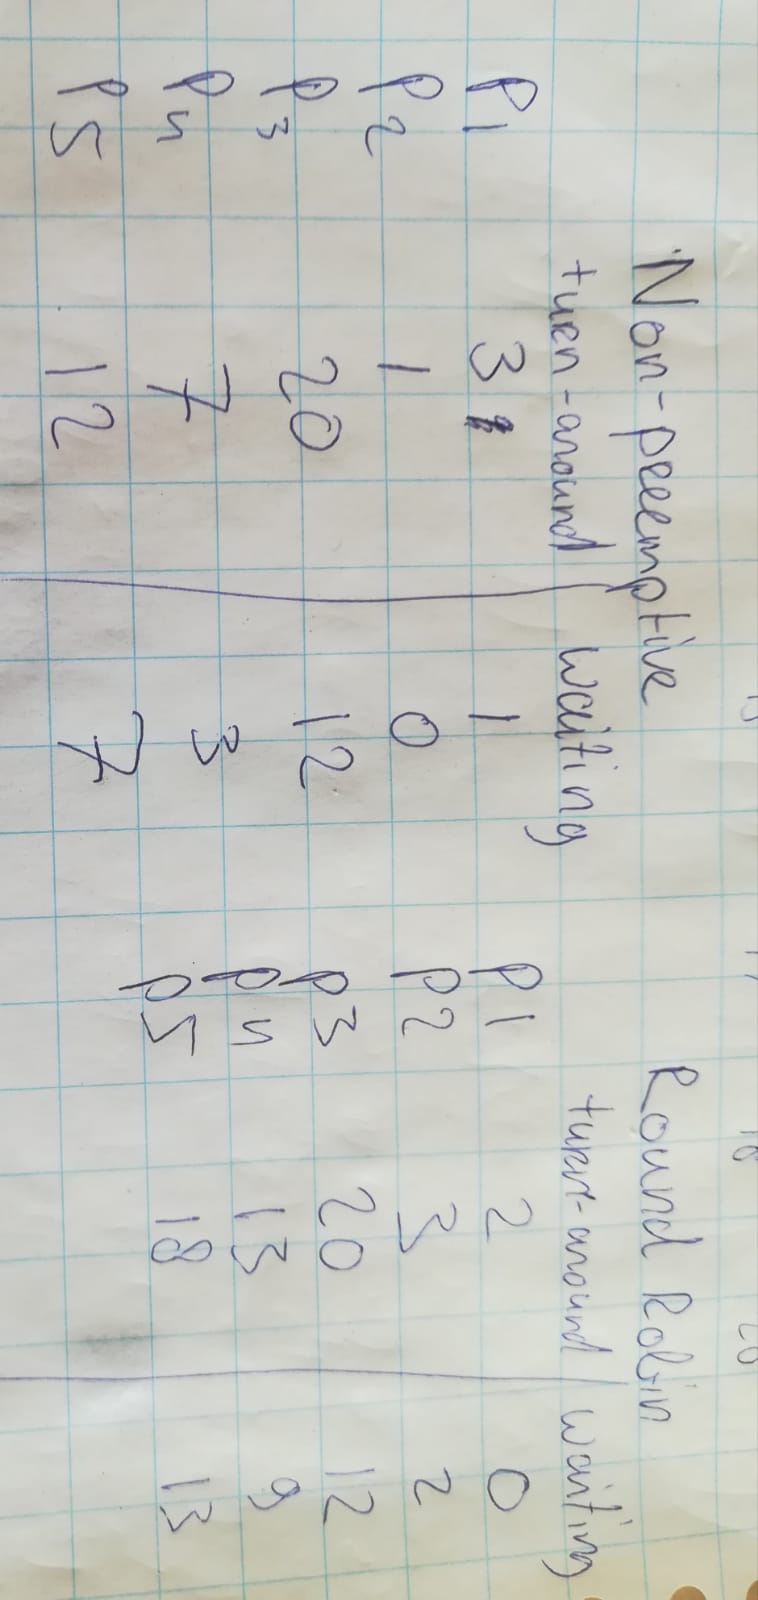 Non-preemptive
turn-around waiting
P1 3 1
P2 1 0
P3 20 12
P4 7 3
P5 12 7
Round Robin
turn-around waiting
P1 2 0
P2 3 2
P3 20 12
P4 13 9
P5 18 13